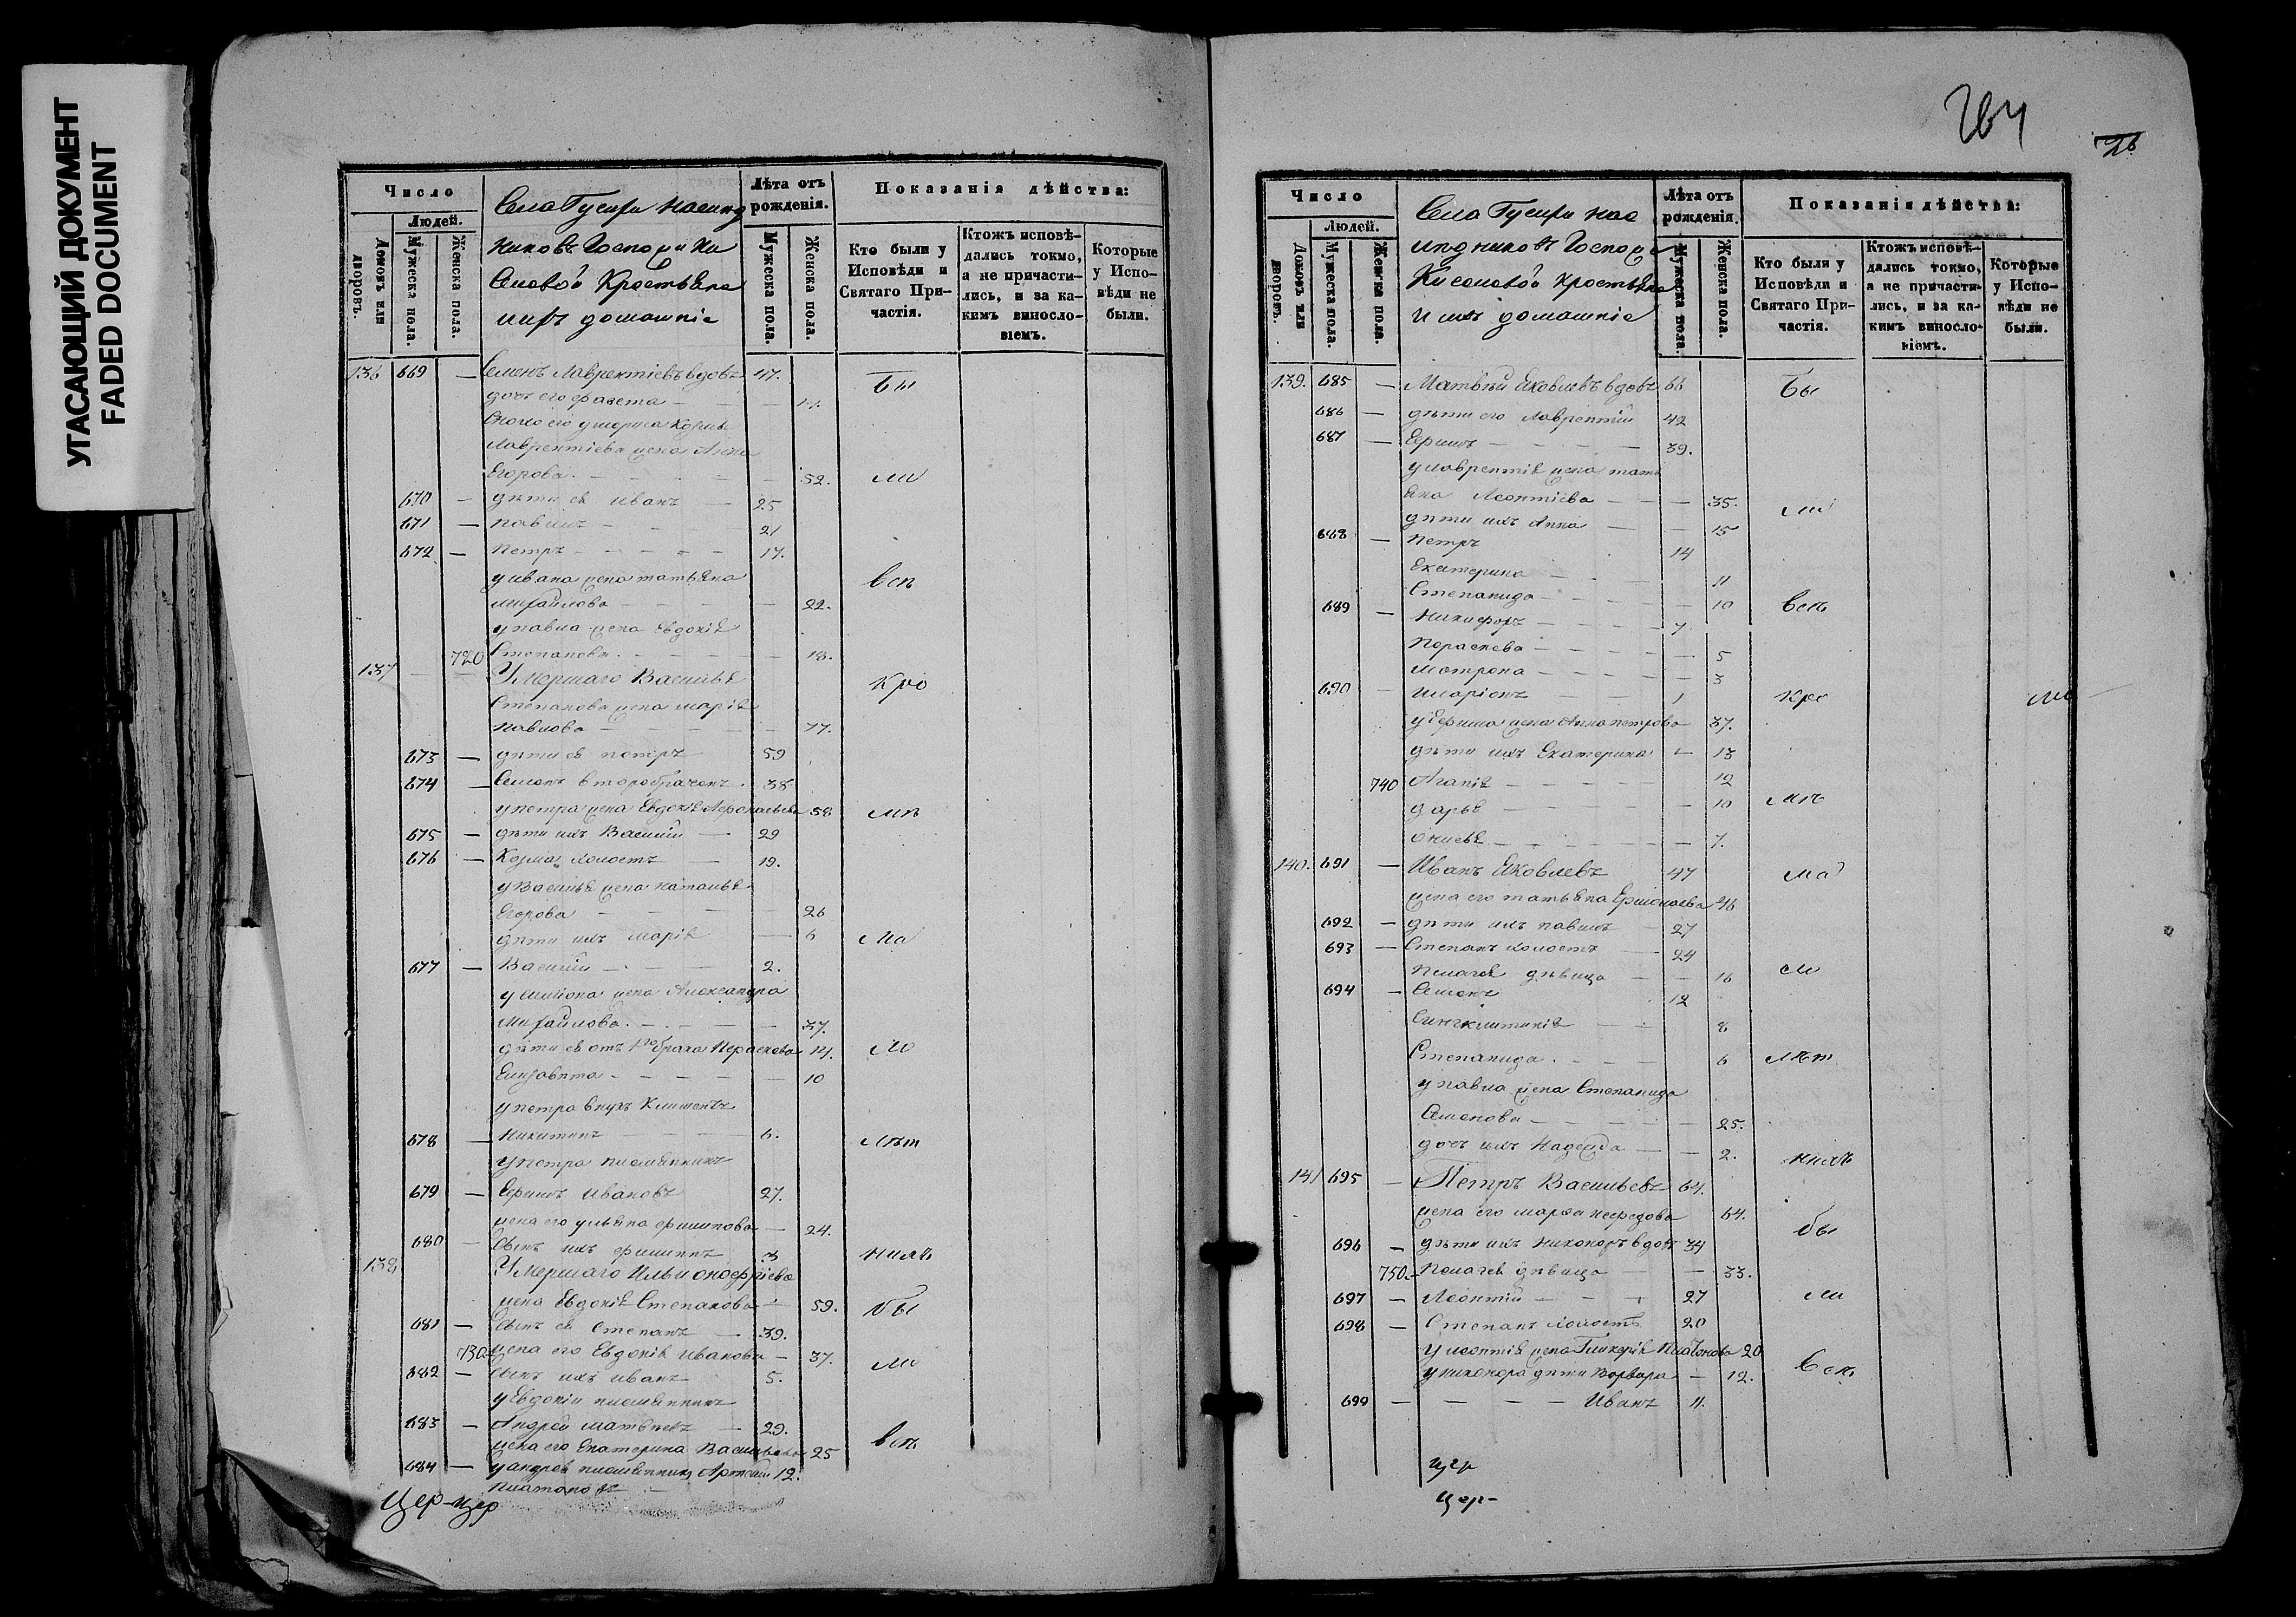 УГАСАЮЩИЙ ДОКУМЕНТ
FADED DOCUMENT
Число
Людей.
Домовъ или дворовъ.
Мужеска пола.
Женска пола.
Села Гусири наслид
никовъ Госпожи Ки
селовой Крестьяне
ихъ домашнiе
Лѣта отъ рожденiя.
Мужеска пола.
Женска пола.
Показанiя дѣйства:
Кто были у Исповѣди и Святаго Причастiя.
Ктожъ исповѣдались токмо, а не причастились, и за какимъ винословiемъ.
Которые у Исповѣди не были.
136 669 — Семенъ Лаврентiевъ вдовъ 47. Бы
дочь его — —
Лаврентiева жена Анна
Егорова — 52. ли
670 — дѣти ея Иванъ — 25
671 — Павелъ — 21
672 — Петръ — 17.
у Ивана жена Татьяна всѣ
Михайлова — 22.
у Павла жена Евдокiя
720 Степанова — 18.
137 — Умершаго Василья Кро
Степанова жена Марiя
Павлова — 77.
673 — дѣти ея Петръ 59
674 — Семенъ второбраченъ 38
у Петра жена Евдокiя 58 мѣ
675 — дѣти ихъ Василiй — 29
676 — Козма холостъ — 19.
у Василья жена Наталья
Егорова — 26
дѣти ихъ Марiя — 6 ма
677 — Василiй — 2.
у Симiона жена Александра
Михайлова — 37.
дѣти ея отъ 1го брака Пераскева 14. ло
Елизавета — 10
у Петра внукъ Климентъ
678 — Никитинъ 6. лѣт
у Петра племянникъ
679 — Ефимъ Ивановъ 27.
жена его Ульяна Филипова — 24.
680 — сынъ ихъ Филиппъ 3 нихъ
138 Умершаго Ильи Онофрiева
жена Евдокiя Степанова — 59. бы
681 — сынъ ея Степанъ — 39.
730 жена его Евдокiя Иванова — 37. ли
682 — сынъ ихъ Иванъ 5.
у Евдокiи племянникъ
683 — Андрей Матвѣевъ — 29.
жена его Екатерина Васильева 25 всѣ
684 — у Андрея племянникъ Артемiй 12.
Платоновъ
Цер-цер
264
26
Число
Людей.
Домовъ или дворовъ.
Мужеска пола.
Женска пола.
Села Гусири нас
лидниковъ Госпожи
Киселовой Крестьяне
и ихъ домашнiе
Лѣта отъ рожденiя.
Мужеска пола.
Женска пола.
Показанiя дѣйства:
Кто были у Исповѣди и Святаго Причастiя.
Ктожъ исповѣдались токмо, а не причастились, и за какимъ винословiемъ.
Которые у Исповѣди не были.
139. 685 — Матвѣй Яковлевъ вдовъ 66 Бы
686 — дѣти его Лаврентiй 42
687 — Ефимъ — 39.
у Лаврентiя жена Тать
яна Леонтiева — 35. ли
дѣти ихъ Анна — 15
688 — Петръ 14
Екатерина — 11
Степанида — 10 всѣ
689 — Никифоръ — 7.
Пораскева — 5
Матрона — 3
690 — Иларiонъ — 1 Кро
у Ефима жена Анна Петрова 37.
дѣти ихъ Екатерина — 13
740 Агапiя — 12
Дарья — 10 мѣ
— 7.
140. 691 — Иванъ Яковлевъ 47 ма
жена его Татьяна Ермолаева 46
692 — дѣти ихъ Павелъ — 27
693 — Степанъ холостъ 24
Пелагея дѣвица — 16 ло
694 — Семенъ 12
Синклитикiя — 8
Степанида — 6 лѣт
у Павла жена Степанида
Семенова — 25.
дочь ихъ Надежда — 2. нихъ
141 695 — Петръ Васильевъ 64.
жена его Марфа 64. бы
696 — дѣти ихъ Никоноръ вдовъ 34
750 — Пелагея дѣвица — 33.
697 — Леонтiй — 27 ли
698 — Степанъ холостъ 20
у Леонтiя жена Гликерiя Платонова 20
у Никонора дѣти Варвара — 12. всѣ
699 — Иванъ 11.
цер
цер-